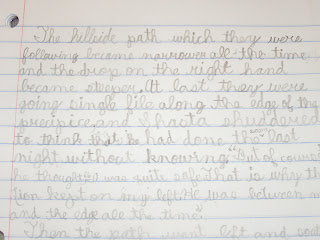 The hillside path which they were
following became narrower all the time
and the drop on the right hand
became steeper. At last they were
going single file along the edge of the
precipice and Shasta shuddered
to think that he had done the last
night without knowing. "But of course
he thought it was quite safe. That is why the
lion kept on my left. He was between me
and the edge all the time."
Then the path went left and